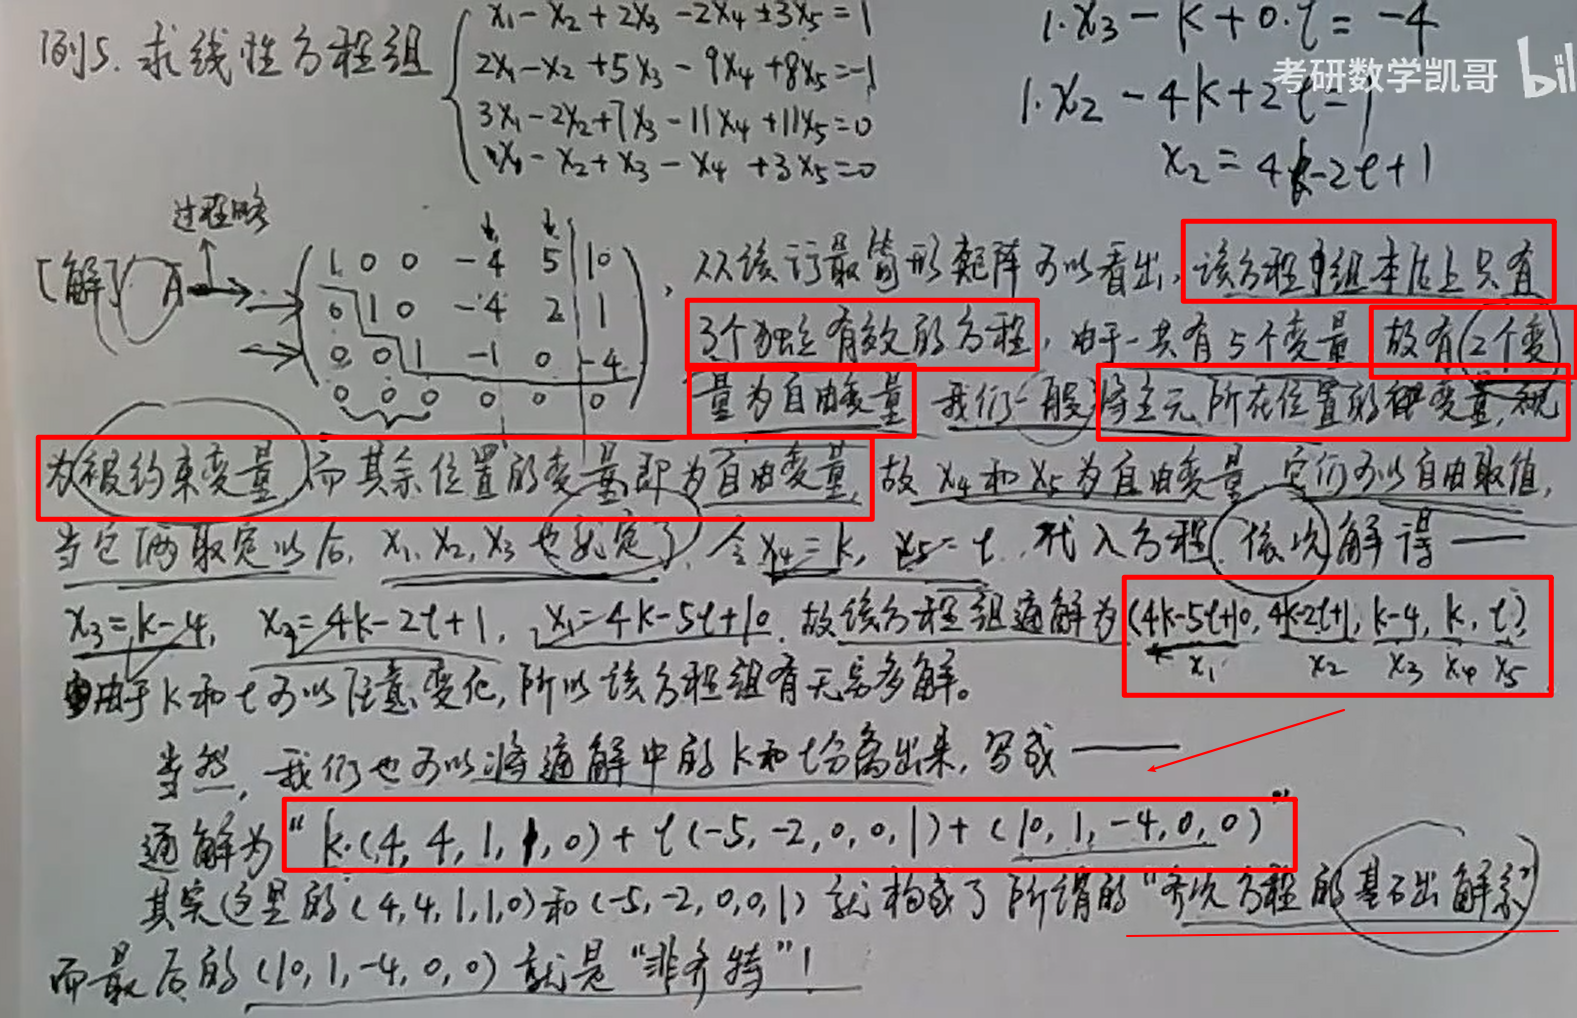 例5. 求线性方程组
x₁-x₂+2x₃-2x₄+3x₅=1
2x₁-x₂+5x₃-9x₄+8x₅=-1
3x₁-2x₂+7x₃-11x₄+11x₅=0
x₁-x₂+x₃-x₄+3x₅=0
1·x₃-k+0·t=-4
考研数学凯哥 bil
1·x₂-4k+2t=1
x₂=4k-2t+1
过程略
[解] A →
1 0 0 -4 5 10
0 1 0 -4 2 1
0 0 1 -1 0 -4
0 0 0 0 0 0
, 从该行最简形矩阵可以看出, 该方程组本质上只有
3个独立有效的方程, 由于一共有5个变量 故有2个变
量为自由变量 我们一般将主元所在位置的变量,视
为被约束变量 而其余位置的变量即为自由变量, 故x₄和x₅为自由变量, 它们可以自由取值,
当它俩取定以后, x₁, x₂, x₃也就定了, 令x₄=k, x₅=t. 代入方程 依次解得——
x₃=k-4, x₂=4k-2t+1, x₁=4k-5t+10. 故该方程组通解为(4k-5t+10, 4k-2t+1, k-4, k, t),
x₁ x₂ x₃ x₄ x₅
由于k和t可以任意变化, 所以该方程组有无穷多解。
当然, 我们也可以将通解中的k和t分离出来, 写成——
通解为“k·(4, 4, 1, 1, 0)+t(-5, -2, 0, 0, 1)+(10, 1, -4, 0, 0)”
其实这里的(4,4,1,1,0)和(-5,-2,0,0,1)就构成了所谓的“齐次方程的基石出解系”
而最后的(10,1,-4,0,0)就是“非齐特”!